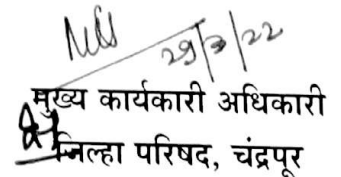 29/3/22
मुख्य कार्यकारी अधिकारी
जिल्हा परिषद, चंद्रपूर